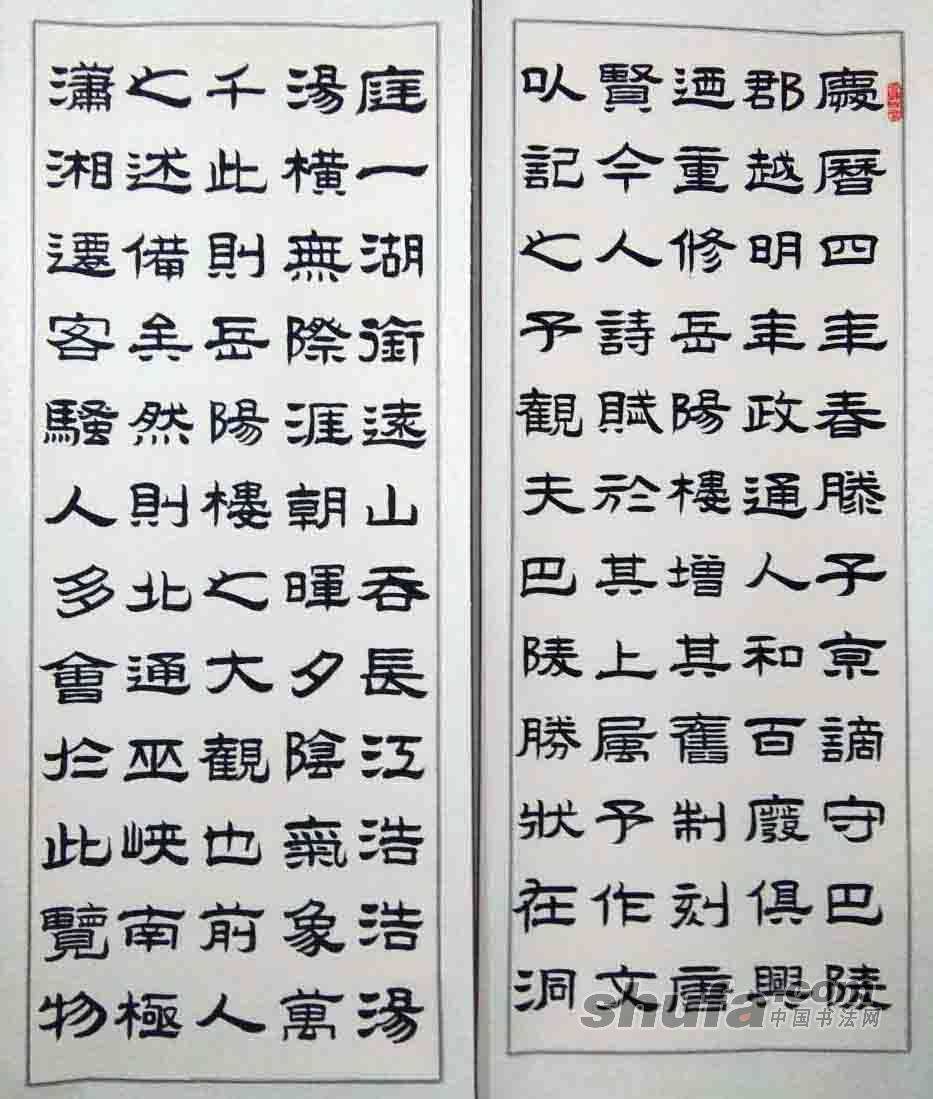 慶曆四年春滕子京謫守巴陵
郡越明年政通人和百廢俱興
迺重修岳陽樓增其舊制刻唐
賢今人詩賦於其上属予作文
以記之予觀夫巴陵勝狀在洞
庭一湖銜遠山吞長江浩浩湯
湯橫無際涯朝暉夕陰氣象萬
千此則岳陽樓之大觀也前人
之述備矣然則北通巫峽南極
瀟湘遷客騷人多會於此覽物
shufa.com
中国书法网